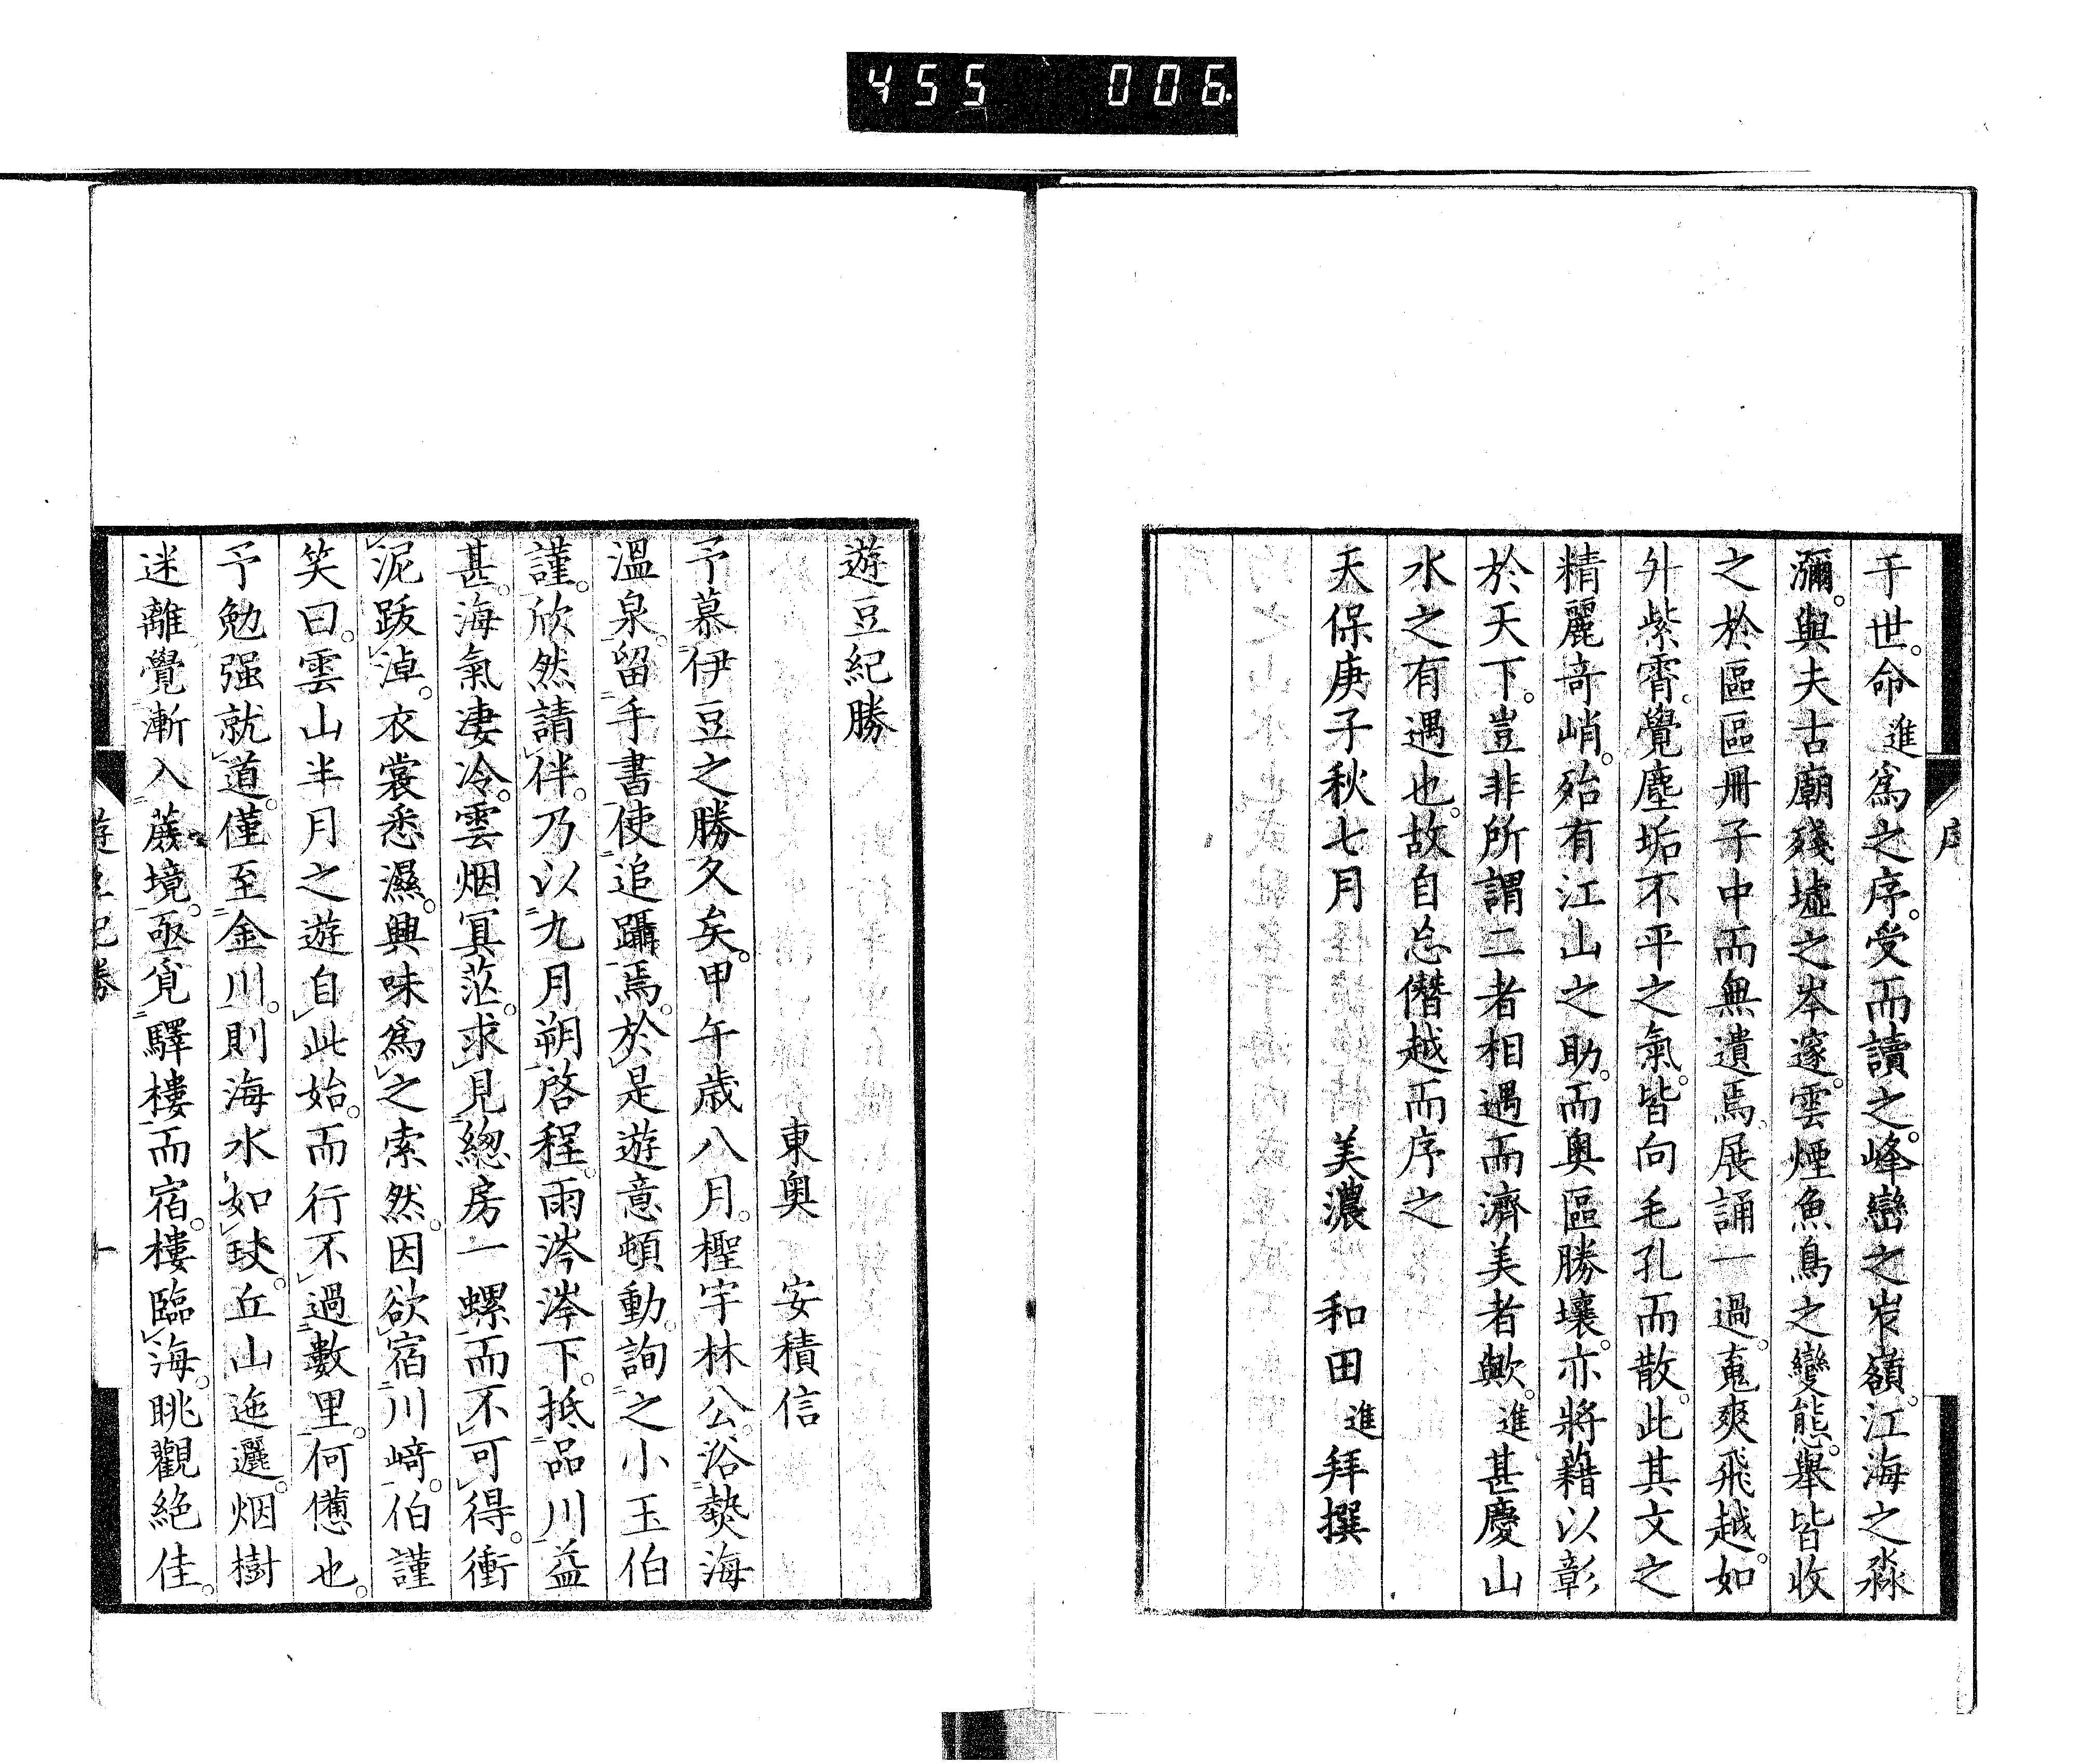 455 006
序
于世。命進爲之序。受而讀之。峰巒之岌嶺。江海之淼
瀰。與夫古廟殘墟之岑邃。雲煙魚鳥之變態。舉皆收
之於區區冊子中而無遺焉。展誦一過。䰟爽飛越。如
外紫霄。覺塵垢不平之氣。皆向毛孔而散。此其文之
精麗奇峭。殆有江山之助。而奧區勝壤。亦將藉以彰
於天下。豈非所謂二者相遇而濟美者歟。進甚慶山
水之有遇也。故自忘僭越而序之
天保庚子秋七月 美濃 和田進拜撰
遊豆紀勝
東奧 安積信
予慕伊豆之勝久矣。甲午歲八月。檉宇林公。浴𤍠海
溫泉。留手書使追躡焉。於是遊意頓動。詢之小玉伯
謹。欣然請伴。乃以九月朔啓程。雨涔涔下。抵品川益
甚。海氣凄冷。雲烟冥茫。求見總房一螺而不可得。衝
泥跋淖。衣裳悉濕。興味爲之索然。因欲宿川﨑。伯謹
笑曰。雲山半月之遊自此始。而行不過數里。何憊也。
予勉强就道。僅至金川。則海水如琰。丘山迤邐。烟樹
迷離覺漸入蔗境。亟覓驛樓而宿。樓臨海。眺觀絶佳。
遊豆紀勝 一